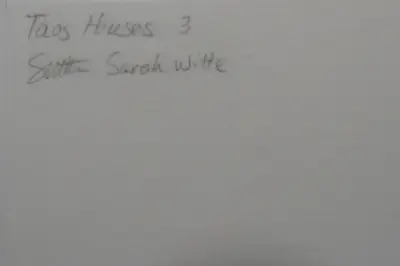 Taos Houses 3
Sarah Witte